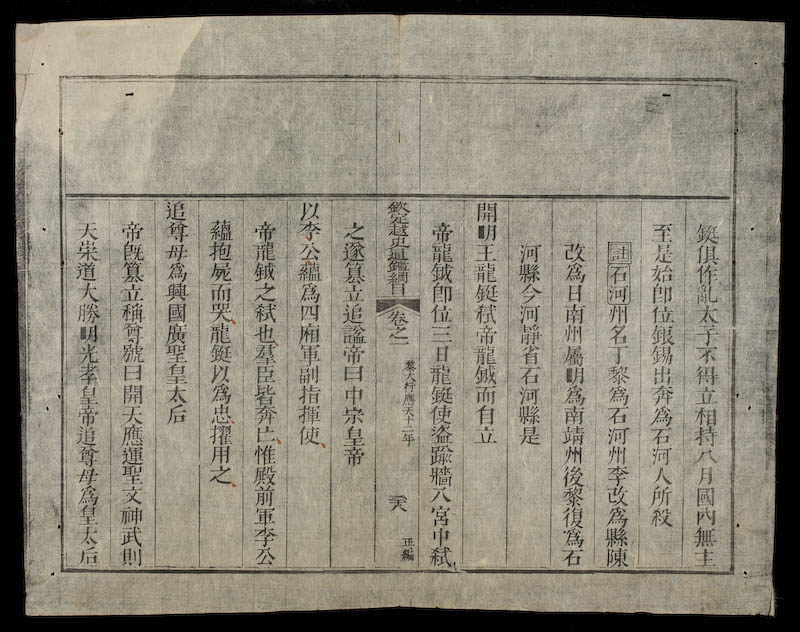 鋌俱作亂太子不得立相持八月國內無主
至是始卽位銀錫出奔爲石河人所殺
註石河州名丁黎爲石河州李改爲縣陳
改爲日南州屬明爲南靖州後黎復爲石
河縣今河靜省石河縣是
開明王龍鋌弒帝龍鉞而自立
帝龍鉞卽位三日龍鋌使盜踰牆入宮中弒
欽定越史通鑑綱目 卷之一 黎大行應天十二年 三八 正編
之遂篡立追謚帝曰中宗皇帝
以李公蘊爲四廂軍副指揮使
帝龍鉞之弒也羣臣皆奔亡惟殿前軍李公
蘊抱屍而哭龍鋌以爲忠擢用之
追尊母爲興國廣聖皇太后
帝旣篡立稱尊號曰開天應運聖文神武則
天崇道大勝明光孝皇帝追尊母爲皇太后